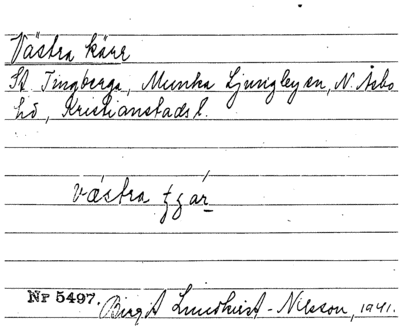 Västra kärr
St Tingberga, Munka Ljungby sn, N. Åsbo
hd, Kristianstads l.
västra
Nr 5497.
Birgit Lundkvist-Nilsson, 1941.